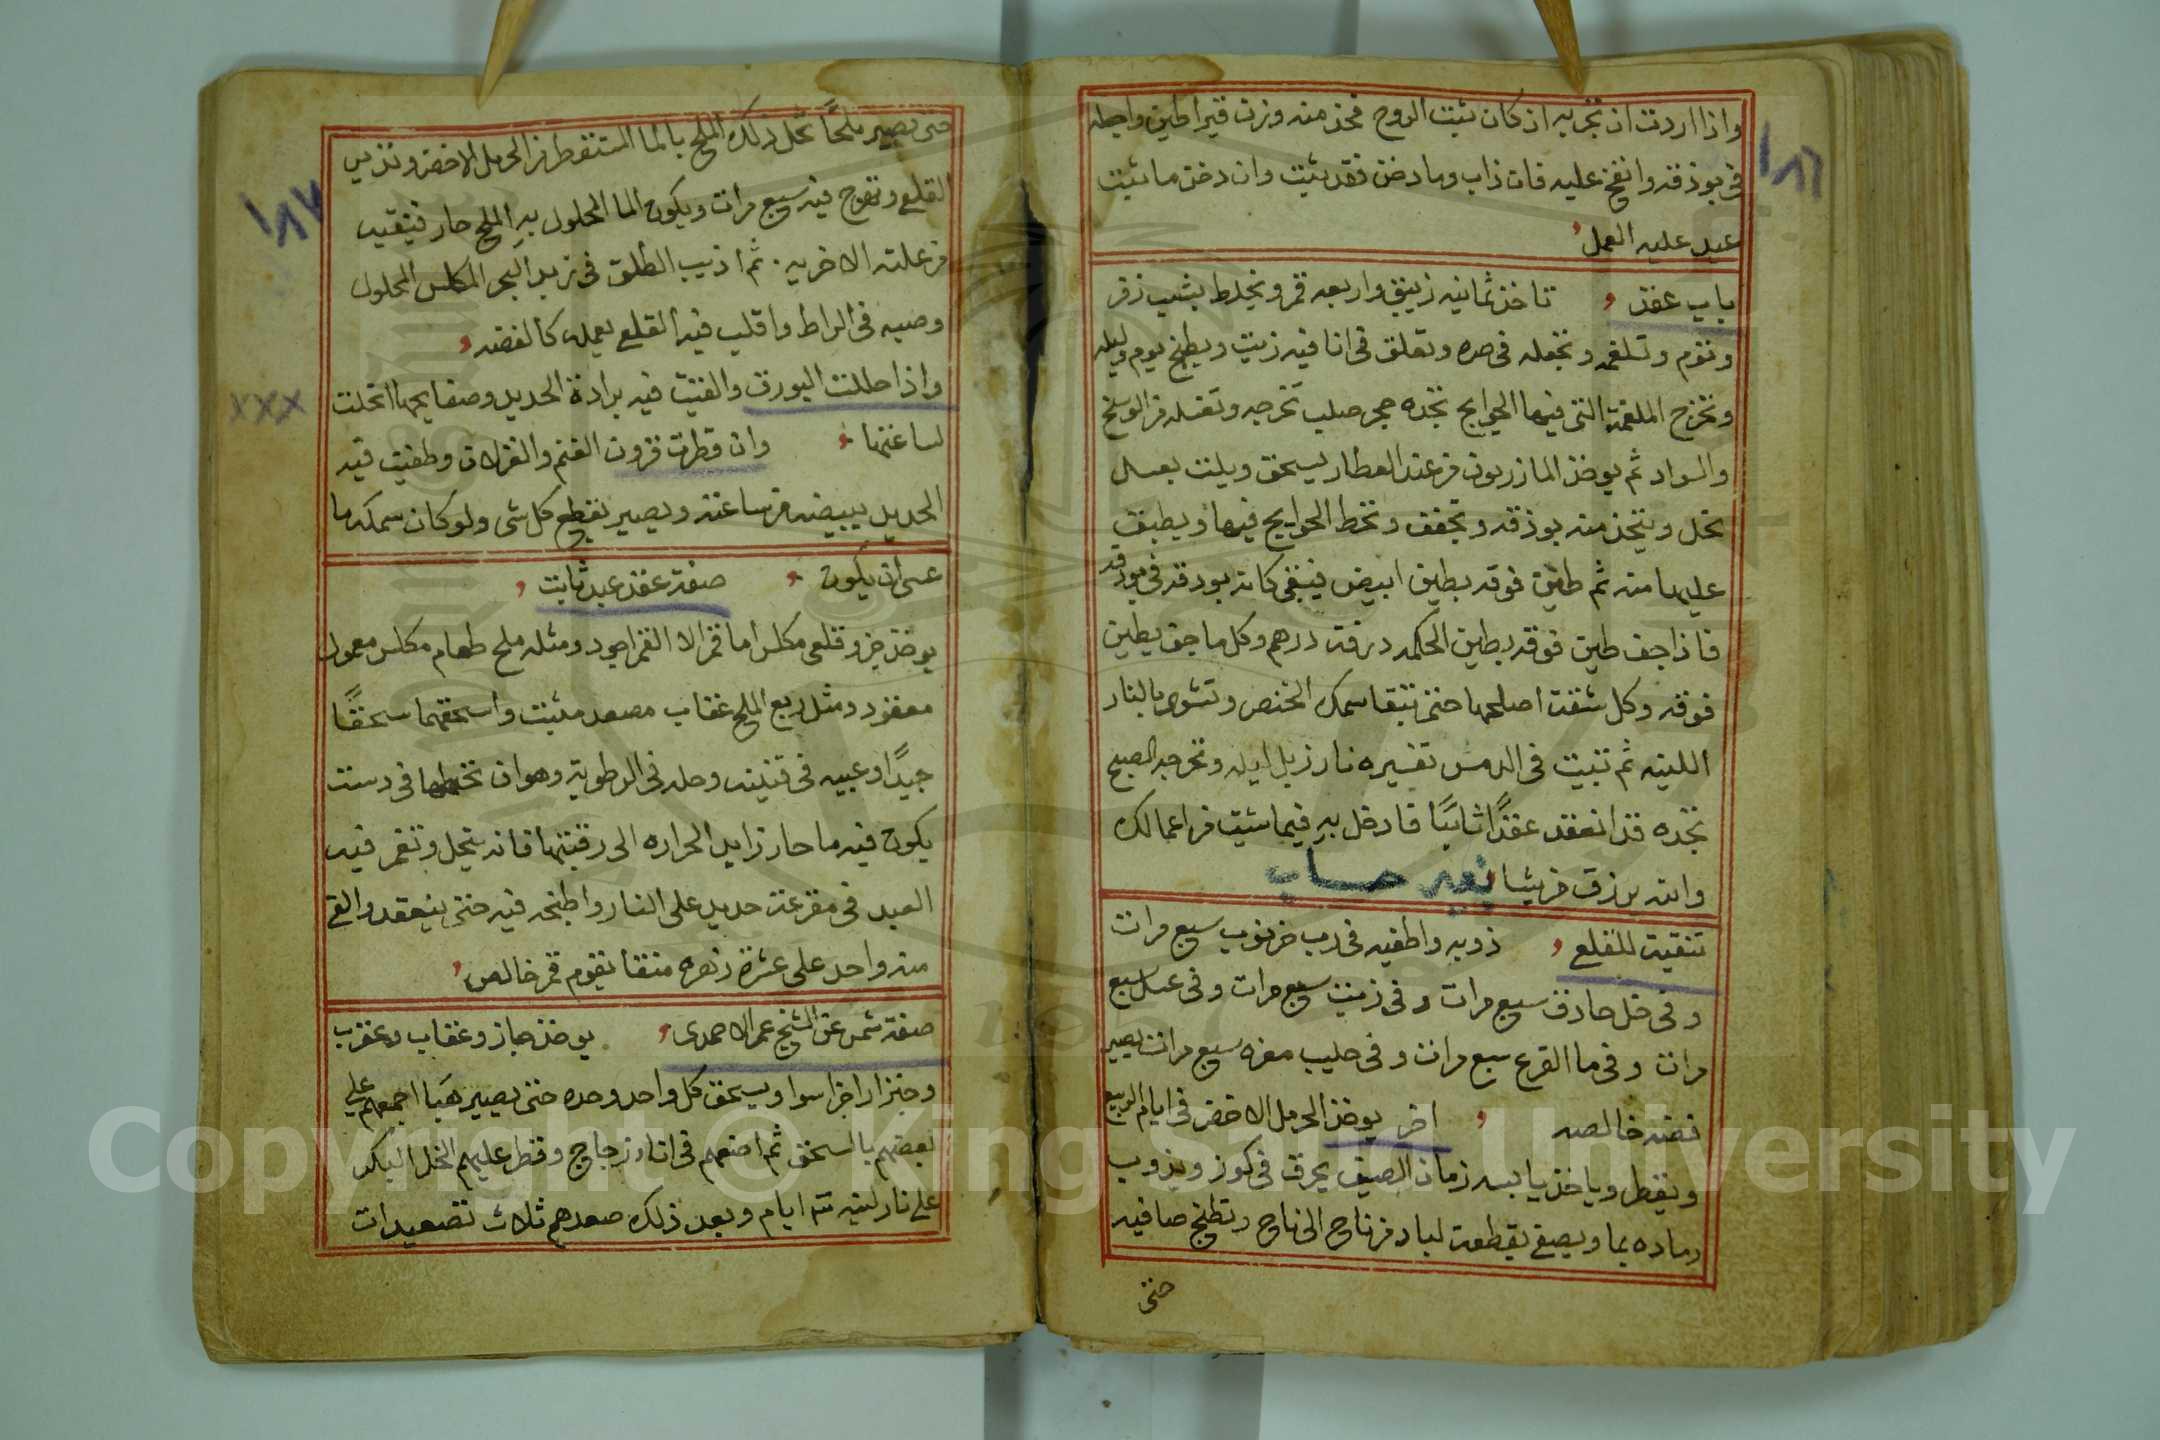 ١٨٦
واذا اردت ان تجربه ان كان يثبت الروح فخذ منه وزن قيراطين واجعله
في بوذقه وانفخ عليه فان ذاب وما دخن فقد يثبت وان دخن ما يثبت
عيد عليه العمل
باب عقد تاخذ ثمانيه زيبق واربعه قمر ويخلط بشب زفر
وتقوم وتلغمه وتجعله في صره وتعلق في انا فيه زيت ويطبخ يوم وليله
وتخرج الملغمة التي فيها الحوايج تجده حجر صلب تخرجه وتغسله من الوسخ
والسواد ثم يوخذ المازريون من عند العطار يسحق ويلت بعسل
نحل ويتخذ منه بوذقه وتجفف وتحط الحوايج فيها ويطبق
عليها منه ثم طين فوقه بطين ابيض فيبقي كانه بودقه في بودقه
فاذا جف طين فوقه بطين الحكمه درقة درهم وكل ما جف يطين
فوقه وكل شقت اصلحها حتي تبقا سمك الخنصر وتشوي بالنار
اللينه ثم تبيت في الدمس تفسيره نار زبل ليله وتخرجه الصبح
تجده قد انعقد عقدًا ثابتًا فادخل بهِ فيما شيت من اعمالك
والله يرزق من يشا بغير حساب
تنقيت للقلعي ذوبه واطفيه في رب خرنوب سبع مرات
وفي خل حاذق سبع مرات وفي زيت سبع مرات وفي عسل سبع
مرات وفي ما القرع سبع مرات وفي حليب معزه سبع مرات يصير
فضه خالصه اخر يوخذ الحرمل الاخضر في ايام الربيع
ويقطر وياخذ يابسه زمان الصيف يحرق في كوز ويذوب
رماده بما ويصفي بقطعة لباد من ناح الى ناح وتطبخ صافيه
حتي
١٨٧
حتى يصير ملحًا تحل ذلك الملح بالما المستقطر من الحرمل الاخضر وتذيب
القلعي وتفرج فيه سبع مرات ويكون الما المحلول بهِ الملح حار فينقيه
من علته الاخريه ثم اذيب الطلق في زبد البحر المكلس المحلول
وصبه في الراط واقلب فيه القلعي يعمله كالفضه
واذا حللت البورق والقيت فيه برادة الحديد وصفايحها انحلت
لساعتها وان قطرت قرون الغنم والغزلان وطفيت فيه
الحديد يبيضه من ساعته ويصير يقطع كل شي ولو كان سمكه ما
عسى ان يكون صفة عقد عبد ثابت
يوخذ جزو قلعي مكلس اما قمر الا القمر اجود ومثله ملح طعام مكلس معمول
معقود ومثل ربع الملح عقاب مصعد مثبت واسحقهما سحقًا
جيدًا وعبيه في قنينه وحله في الرطوبة وهو ان تحطها في دست
يكون فيه ما حار زايد الحراره الى رقبتها فانه ينحل وتغمر فيه
العبد في مقرعة حديد على النار واطبخه فيه حتى ينعقد والقي
منه واحد على عشرة زهره منقا يقوم قمر خالص
صفة شمس عن الشيخ عمر الاحمدي يوخذ حجاز وعقاب وعقرب
وجنزار اجزا سوا ويسحق كل واحد وحده حتى يصير هبًا اجمعهم علي
بعضهم بالسحق ثم اضعهم في انا زجاج وقطر عليهم الخل البكر
علي نار لينه ستة ايام وبعد ذلك صعدهم ثلاث تصعيدات
xxx
Copyright © King Saud University
1957